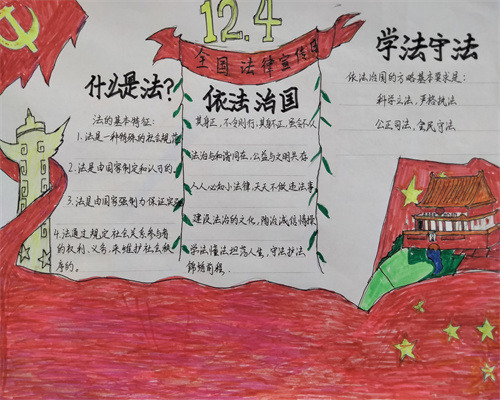 12.4
全国法律宣传日
什么是法?
法的基本特征:
1.法是一种特殊的社会规范
2.法是由国家制定和认可的.
3.法是由国家强制力保证实
4.法通过规定社会关系参与者
的权利、义务,来维护社会秩
序的。
依法治国
其身正,不令则行;其身不正,虽令不从
法治与和谐同在,公益与文明共存
人人心如小法律,天天不做违法事
建设法治的文化,陶冶诚信情操
学法懂法坦荡人生,守法护法
锦绣前程.
学法守法
依法治国的方略基本要求是:
科学立法,严格执法
公正司法,全民守法